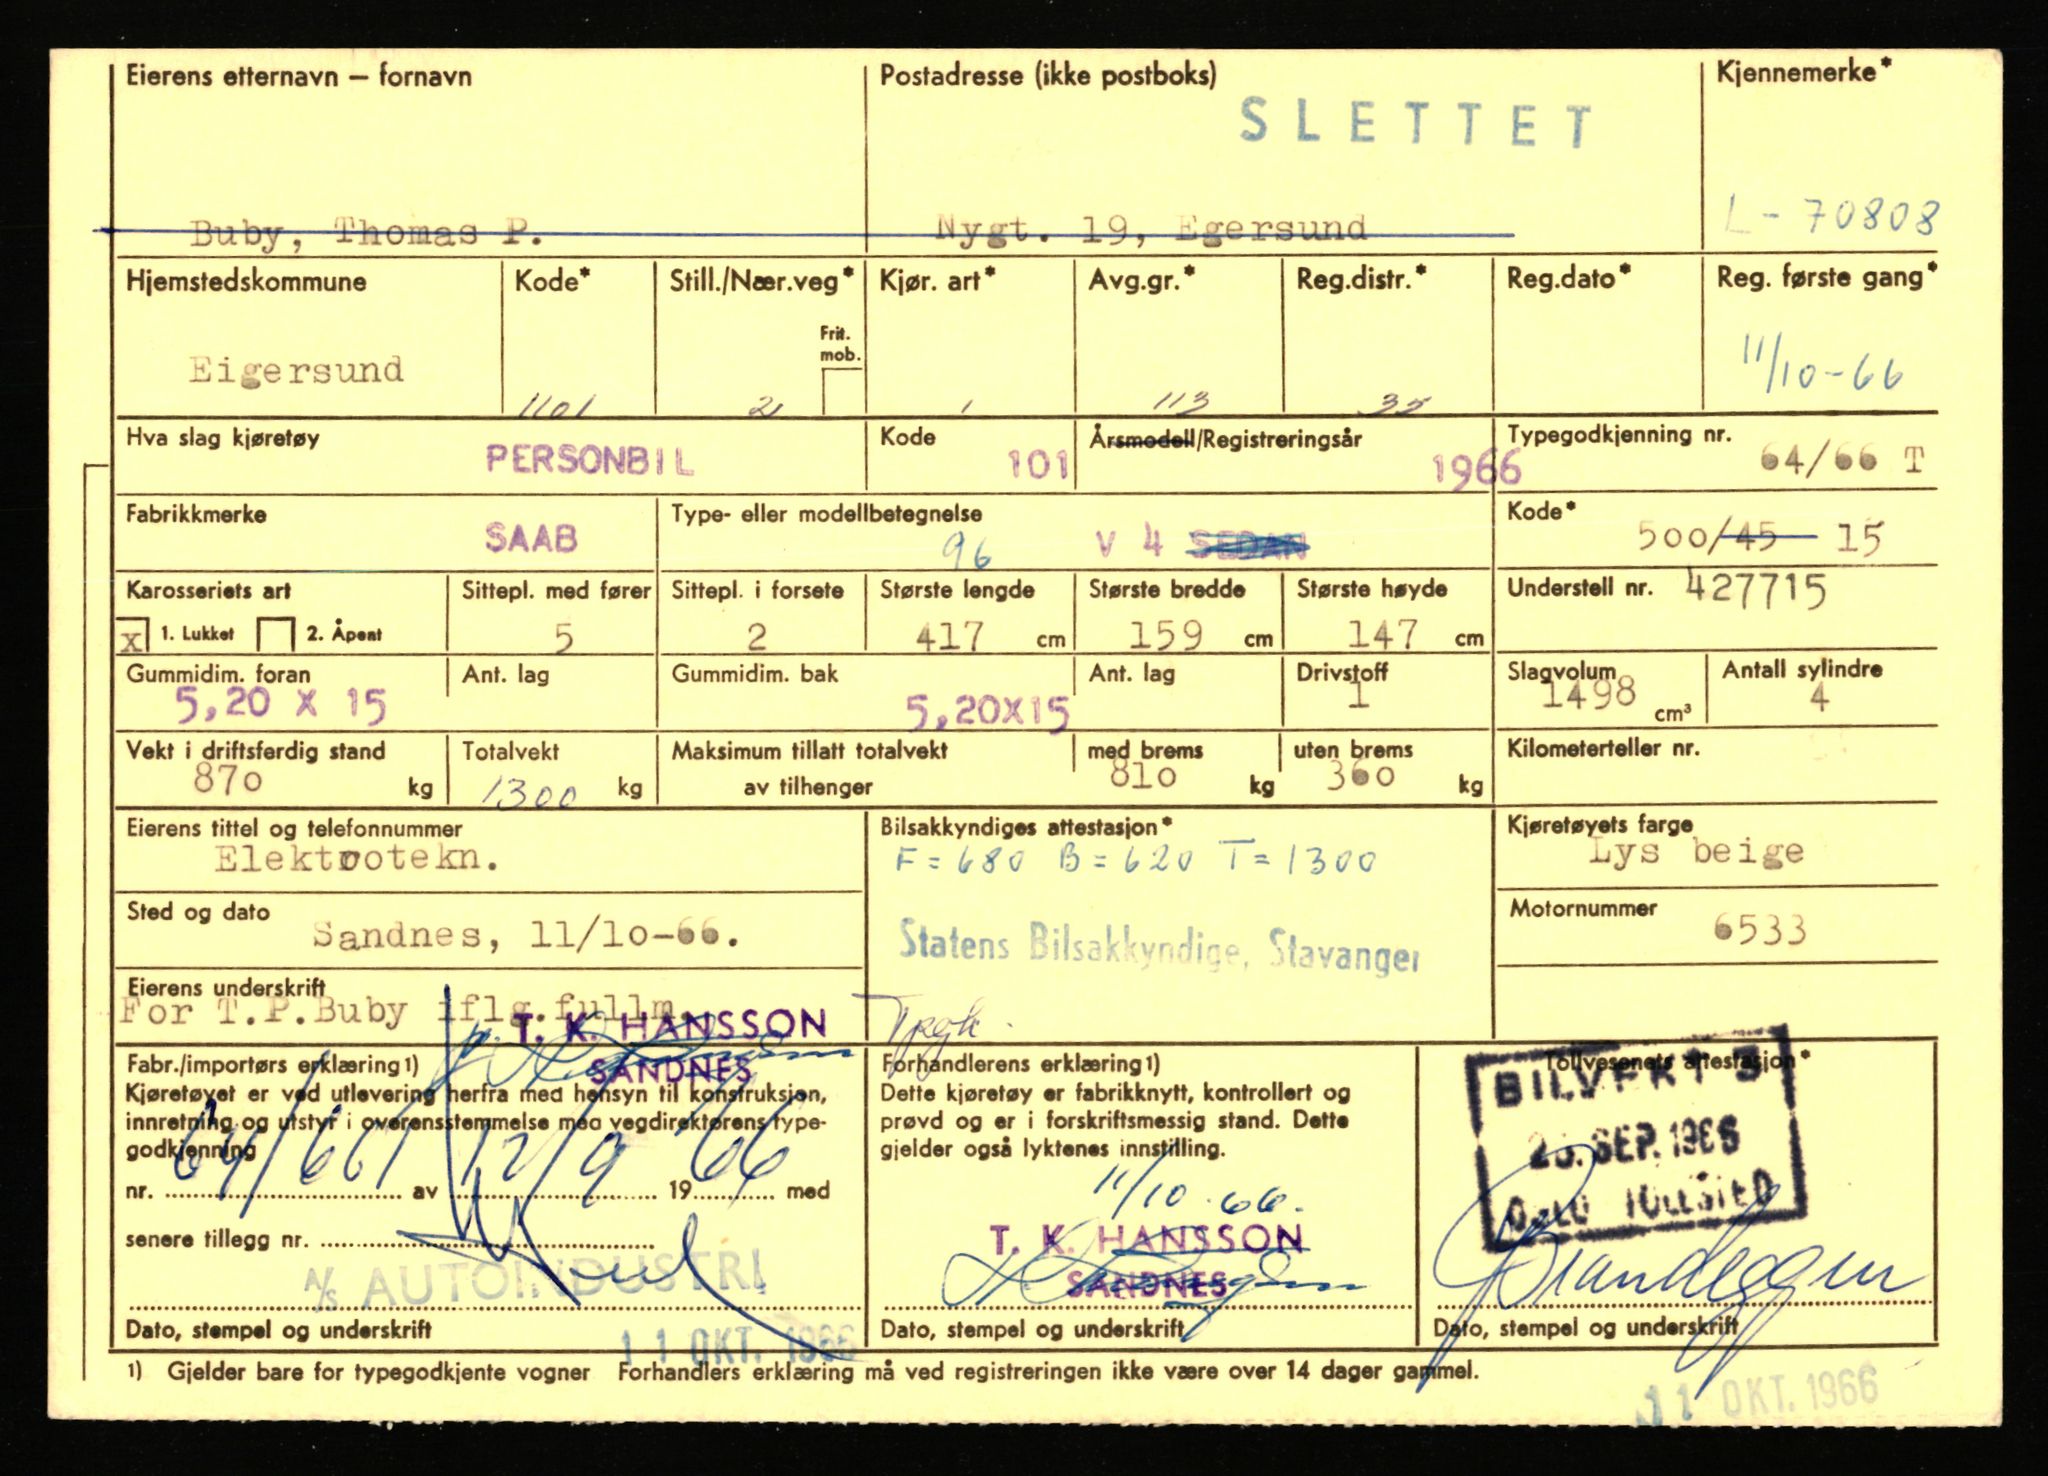 Eierens etternavn — fornavn Postadresse (ikke postboks) Kjennemerke*
SLETTET
Buby, Thomas P. Nygt. 19, Egersund L - 70808
Hjemstedskommune Kode* Still./Nær.veg* Kjør. art* Avg.gr.* Reg.distr.* Reg.dato* Reg. første gang*
Frit.
mob.
Eigersund 1101 2 1 113 35 11/10-66
Hva slag kjøretøy PERSONBIL Kode 101 Årsmodell/Registreringsår 1966 Typegodkjenning nr. 64/66 T
Fabrikkmerke SAAB Type- eller modellbetegnelse 96 V 4 SEDAN Kode* 500/45 15
Karosseriets art Sittepl. med fører Sittepl. i forsete Største lengde Største bredde Største høyde Understell nr. 427715
x 1. Lukket 2. Åpent 5 2 417 cm 159 cm 147 cm
Gummidim. foran Ant. lag Gummidim. bak Ant. lag Drivstoff Slagvolum Antall sylindre
5,20 X 15 5,20X15 1 1498 cm³ 4
Vekt i driftsferdig stand Totalvekt Maksimum tillatt totalvekt med brems uten brems Kilometerteller nr.
870 kg 1300 kg av tilhenger 810 kg 360 kg
Eierens tittel og telefonnummer Bilsakkyndiges attestasjon* Kjøretøyets farge
Elektrotekn. F = 680 B = 620 T = 1300 Lys beige
Sted og dato Motornummer
Sandnes, 11/10-66. Statens Bilsakkyndige, Stavanger 6533
Eierens underskrift
For T.P.Buby iflg.fullm. T. K. HANSSON
SANDNES
Fabr./importørs erklæring 1) Forhandlerens erklæring 1) Tollvesenets attestasjon*
Kjøretøyet er ved utlevering herfra med hensyn til konstruksjon, Dette kjøretøy er fabrikknytt, kontrollert og
innretning og utstyr i overensstemmelse med vegdirektørens type- prøvd og er i forskriftsmessig stand. Dette
godkjenning gjelder også lyktenes innstilling.
nr. 64/66T av 12/9 1966 med 11/10-66.
BILVEKT
SEP. 1966
OSLO TOLLSTED
senere tillegg nr. T. K. HANSSON
A/S AUTOINDUSTRI SANDNES
Dato, stempel og underskrift Dato, stempel og underskrift Dato, stempel og underskrift
11 OKT. 1966
1) Gjelder bare for typegodkjente vogner Forhandlers erklæring må ved registreringen ikke være over 14 dager gammel.
11 OKT. 1966